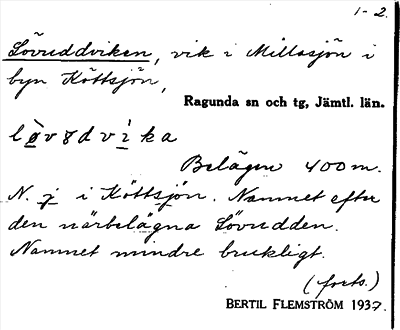 1-2.
Lövuddviken, vik i Millasjön i
byn Köttsjön,
Ragunda sn och tg, Jämtl. län.
Belägen 400 m.
N. i Köttsjön. Namnet efter
den närbelägna Lövudden.
Namnet mindre brukligt.
(forts.)
BERTIL FLEMSTRÖM 1937.